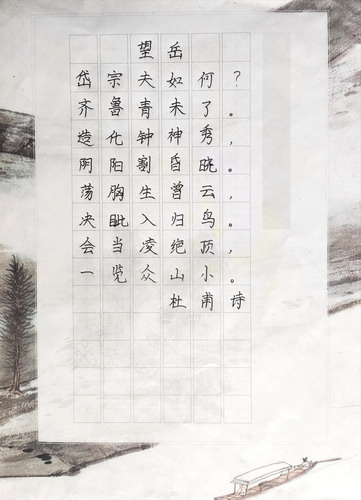 望岳
岱宗夫如何?
齐鲁青未了。
造化钟神秀，
阴阳割昏晓。
荡胸生曾云，
决眦入归鸟。
会当凌绝顶，
一览众山小。
杜甫诗